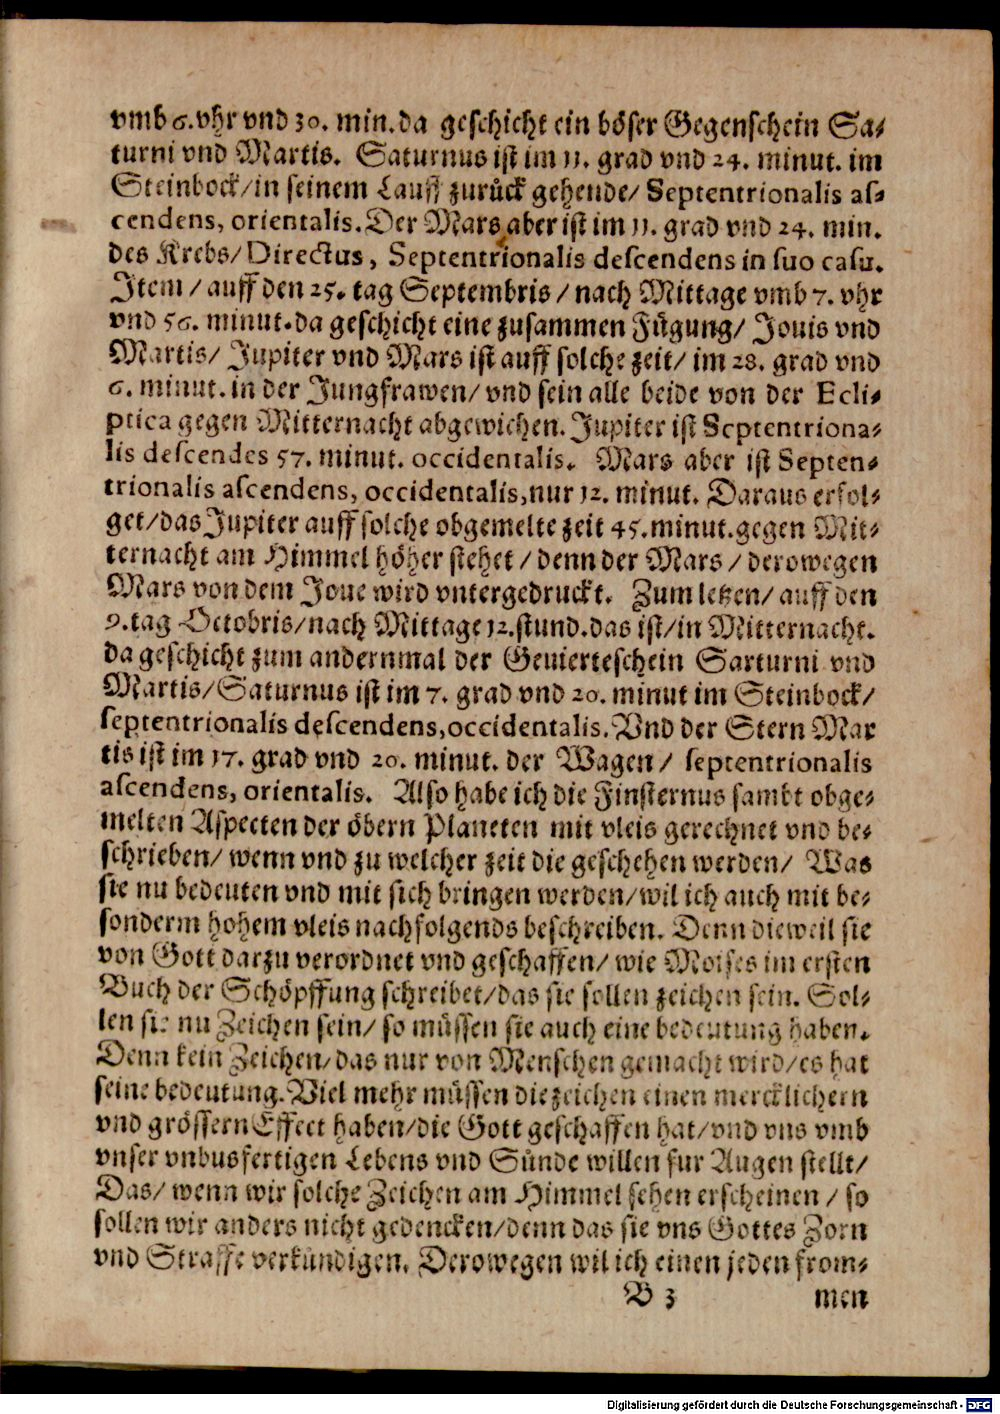 vmb 6. vhr vnd 30. min. da geschicht ein böser Gegenschein Sa⸗
turni vnd Martis. Saturnus ist im 11. grad vnd 24. minut. im
Steinbock/ in seinem Lauff zurück gehende/ Septentrionalis as⸗
cendens, orientalis. Der Mars aber ist im 11. grad vnd 24. min.
des Krebs/ Directus, Septentrionalis descendens in suo casu.
Item/ auff den 25. tag Septembris/ nach Mittage vmb 7. vhr
vnd 56. minut. da geschicht eine zusammen Fügung/ Jouis vnd
Martis/ Jupiter vnd Mars ist auff solche zeit/ im 28. grad vnd
6. minut. in der Jungfrawen/ vnd sein alle beide von der Ecli⸗
ptica gegen Mitternacht abgewichen. Jupiter ist Septentriona⸗
lis descendes 57. minut. occidentalis. Mars aber ist Septen⸗
trionalis ascendens, occidentalis, nur 12. minut. Daraus erfol⸗
get/ das Jupiter auff solche obgemelte zeit 45. minut. gegen Mit⸗
ternacht am Himmel höher stehet/ denn der Mars/ derowegen
Mars von dem Joue wird vntergedruckt. Zum letzen/ auff den
9. tag Octobris/ nach Mittage 12. stund. das ist/ in Mitternacht.
da geschicht zum andernmal der Geuierteschein Sarturni vnd
Martis/ Saturnus ist im 7. grad vnd 20. minut im Steinbock/
septentrionalis descendens, occidentalis. Vnd der Stern Mar
tis ist im 17. grad vnd 20. minut. der Wagen/ septentrionalis
ascendens, orientalis. Also habe ich die Finsternus sambt obge⸗
melten Aspecten der öbern Planeten mit vleis gerechnet vnd be⸗
schrieben/ wenn vnd zu welcher zeit die geschehen werden/ Was
sie nu bedeuten vnd mit sich bringen werden/ wil ich auch mit be⸗
sonderm hohem vleis nachfolgends beschreiben. Denn dieweil sie
von Gott darzu verordnet vnd geschaffen/ wie Moises im ersten
Buch der Schöpffung schreibet/ das sie sollen zeichen sein. Sol⸗
len sie nu Zeichen sein/ so müssen sie auch eine bedeutung haben.
Denn kein Zeichen/ das nur von Menschen gemacht wird/ es hat
seine bedeutung. Viel mehr müssen die zeichen einen mercklichern
vnd grössern Effect haben/ die Gott geschaffen hat/ vnd vns vmb
vnser vnbusfertigen Lebens vnd Sünde willen fur Augen stellt/
Das/ wenn wir solche Zeichen am Himmel sehen erscheinen/ so
sollen wir anders nicht gedencken/ denn das sie vns Gottes Zorn
vnd Straffe verkündigen. Derowegen wil ich einen jeden from⸗
B 3 men
Digitalisierung gefördert durch die Deutsche Forschungsgemeinschaft - DFG